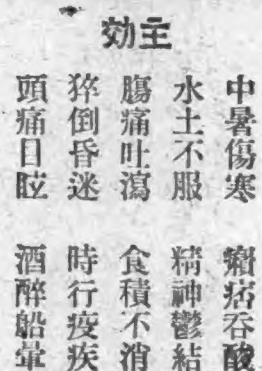 主効
中暑傷寒 癪痞呑酸
水土不服 精神鬱結
膓痛吐瀉 食積不消
猝倒昏迷 時行疫疾
頭痛目眩 酒醉船暈